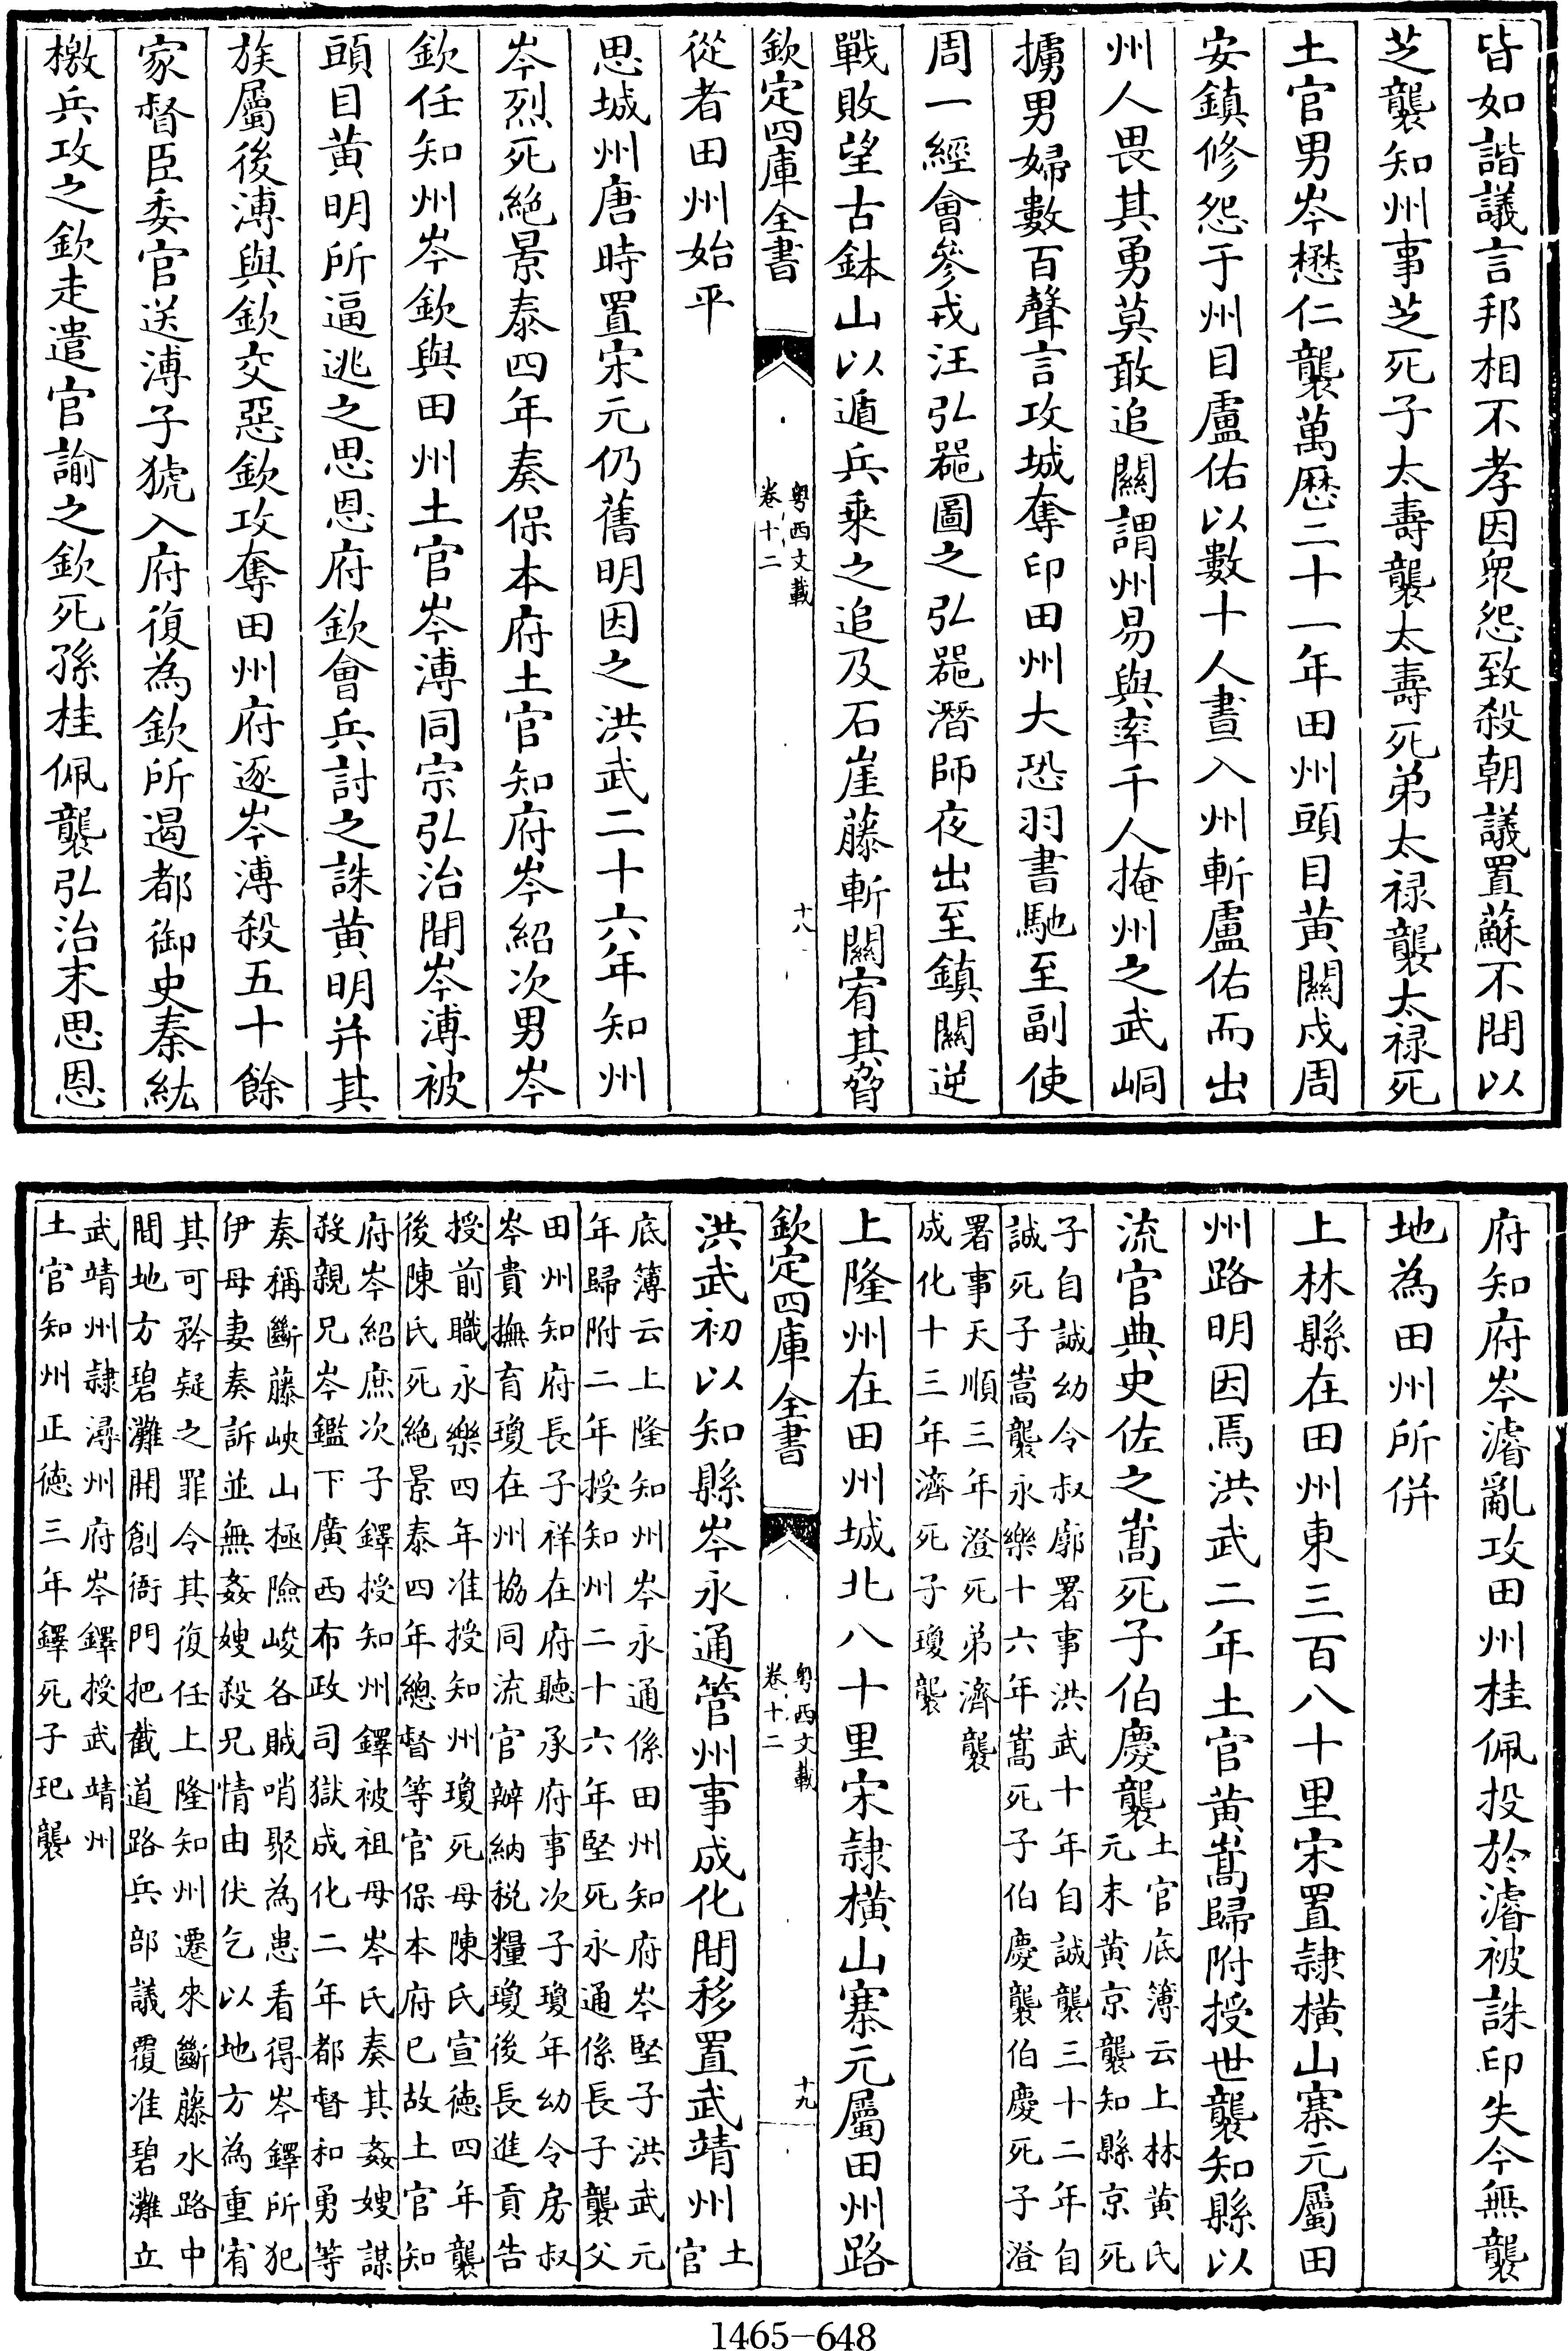 皆如諧議言邦相不孝因眾怨致殺朝議置蘇不問以
芝襲知州事芝死子太壽襲太壽死弟太禄襲太禄死
土官男岑懋仁襲萬厯二十一年田州頭目黄闗戍周
安鎮修怨于州目盧佑以數十人晝入州斬盧佑而出
州人畏其勇莫敢追闗謂州易與率千人掩州之武峒
擄男婦數百聲言攻城奪印田州大恐羽書馳至副使
周一經會參戎汪弘噐圖之弘噐潛師夜出至鎮闗逆
戰敗望古鉢山以遁兵乗之追及石崖藤斬闗宥其脅
欽定四庫全書
粤西文載
卷十二
十八
從者田州始平
思城州唐時置宋元仍舊明因之洪武二十六年知州
岑烈死絶景泰四年奏保本府土官知府岑紹次男岑
欽任知州岑欽與田州土官岑溥同宗弘治間岑溥被
頭目黄明所逼逃之思恩府欽會兵討之誅黄明并其
族屬後溥與欽交惡欽攻奪田州府逐岑溥殺五十餘
家督臣委官送溥子猇入府復為欽所遏都御史秦紘
檄兵攻之欽走遣官諭之欽死孫桂佩襲弘治末思恩
府知府岑濬亂攻田州桂佩投於濬被誅印失今無襲
地為田州所併
上林縣在田州東三百八十里宋置隷横山寨元屬田
州路明因焉洪武二年土官黄嵩歸附授世襲知縣以
流官典史佐之嵩死子伯慶襲
土官底簿云上林黄氏
元末黄京襲知縣京死
子自誠幼令叔廓署事洪武十年自誠襲三十二年自
誠死子嵩襲永樂十六年嵩死子伯慶襲伯慶死子澄
署事天順三年澄死弟濟襲
成化十三年濟死子瓊襲
上隆州在田州城北八十里宋隷横山寨元屬田州路
欽定四庫全書
粤西文載
卷十二
十九
洪武初以知縣岑永通管州事成化間移置武靖州
土
官
底簿云上隆知州岑永通係田州知府岑堅子洪武元
年歸附二年授知州二十六年堅死永通係長子襲父
田州知府長子祥在府聽承府事次子瓊年幼令房叔
岑貴撫育瓊在州協同流官辦納税糧瓊後長進貢告
授前職永樂四年准授知州瓊死母陳氏宣徳四年襲
後陳氏死絶景泰四年總督等官保本府已故土官知
府岑紹庶次子鐸授知州鐸被祖母岑氏奏其姦嫂謀
殺親兄岑鑑下廣西布政司獄成化二年都督和勇等
奏稱斷藤峽山極險峻各賊哨聚為患看得岑鐸所犯
伊母妻奏訴並無姦嫂殺兄情由伏乞以地方為重宥
其可矜疑之罪令其復任上隆知州遷來斷藤水路中
間地方碧灘開創衙門把截道路兵部議覆准碧灘立
武靖州隷潯州府岑鐸授武靖州
土官知州正徳三年鐸死子玘襲
1465-648